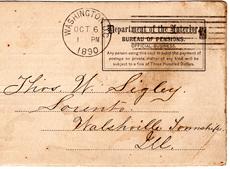 WASHINGTON, D.C.
OCT 6
1 PM
1890
Department of the Interior
BUREAU OF PENSIONS.
OFFICIAL BUSINESS.
Any person using this card to avoid the payment of
postage on private matter of any kind will be
subject to a fine of Three Hundred Dollars.
Thos. W. Sigley,
Sorento,
Walshville Township,
Ill.